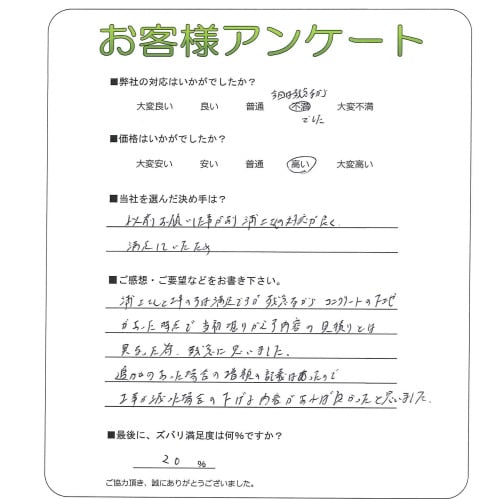 お客様アンケート
■弊社の対応はいかがでしたか？
今回は残念ながら
大変良い 良い 普通 不満 大変不満
でした
■価格はいかがでしたか？
大変安い 安い 普通 高い 大変高い
■当社を選んだ決め手は？
以前お願いした事があり 浦上さんの対応が良く、
満足していたため
■ご感想・ご要望などをお書き下さい。
浦上さんと工事の方は満足ですが 残念ながら コンクリートの下地
があった時点で当初 掘りから 内容の見積りとは
異なった為、残念に思いました。
追加のあった場合の増額の記載はあったので
工事が減った場合の下げる内容があれば良かったと思いました。
■最後に、ズバリ満足度は何%ですか？
20 %
ご協力頂き、誠にありがとうございました。